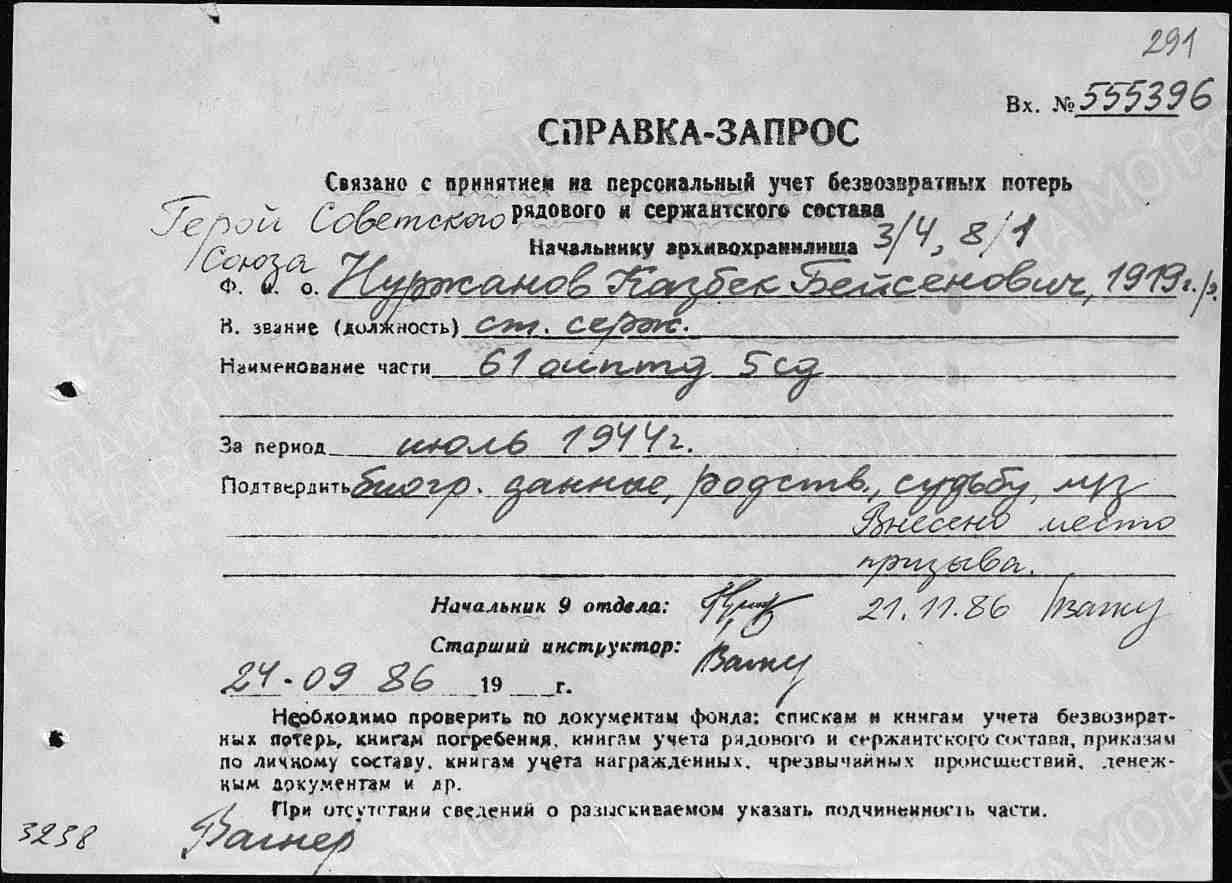 291
Вх. № 555396
СПРАВКА-ЗАПРОС
Связано с принятием на персональный учет безвозвратных потерь
рядового и сержантского состава
Герой Советского
Союза
Начальнику архивохранилища 3/4, 8/1
Ф. и. о. Нуржанов Казбек Бейсенович, 1919г./р.
В. звание (должность) ст. серж.
Наименование части 61 оиптд 5 сд
За период июль 1944г.
Подтвердить биогр. данные, родств., судьбу, м/з
Внесено место
призыва.
Начальник 9 отдела:
21.11.86
Старший инструктор:
24-09 86 19 г.
Необходимо проверить по документам фонда: спискам и книгам учета безвозврат-
ных потерь, книгам погребения, книгам учета рядового и сержантского состава, приказам
по личному составу, книгам учета награжденных, чрезвычайных происшествий, денеж-
ным документам и др.
При отсутствии сведений о разыскиваемом указать подчиненность части.
3238
Вагнер